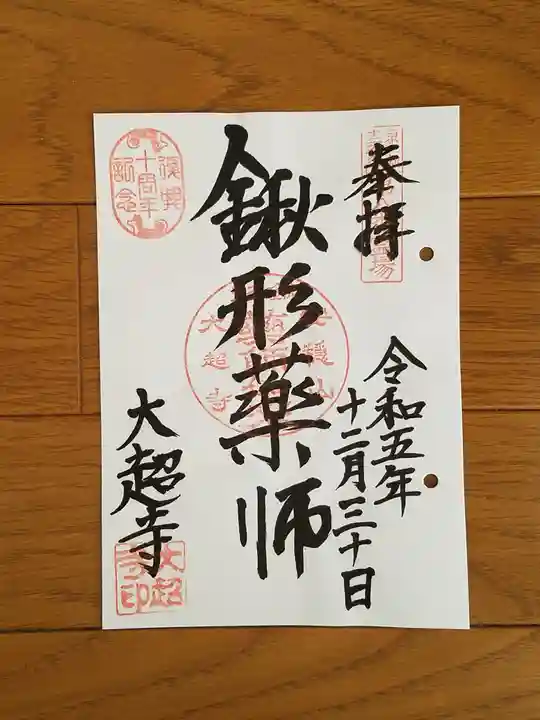 奉拝
令和五年
十二月三十日
鍬形薬師
大超寺
復興
十周年
記念
大超
寺印